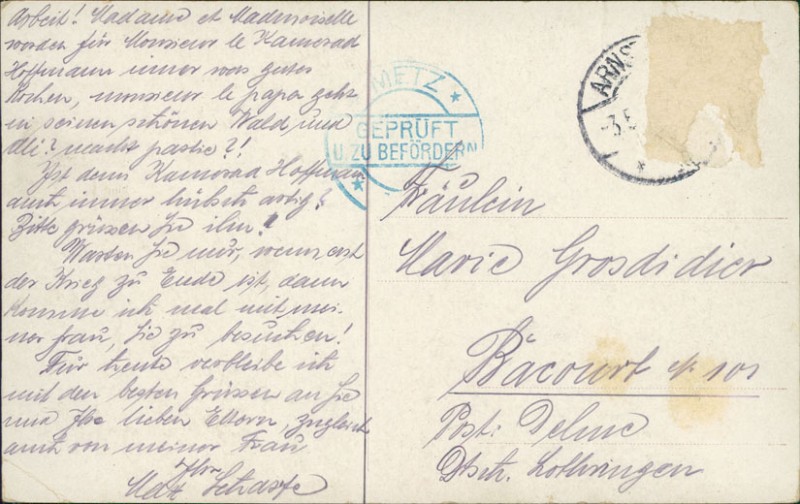 Arbeit! Madame et Mademoiselle
werden für Monsieur le Kamerad
Hoffmann immer was gutes
Kochen, monsieur le papa geht
in seinen schönen Wald und
macht partie?!
Ist denn Kamerad Hoffmann
auch immer hübsch artig?
Bitte grüssen Sie ihn!
Warten Sie nur, wenn erst
der Krieg zu Ende ist, dann
Komme ich mal mit mei-
ner Frau, Sie zu besuchen!
Für heute verbleibe ich
mit den besten Grüssen an Sie
und Ihre lieben Eltern, zugleich
auch von meiner Frau
Ihr
Scharfe
METZ
GEPRÜFT
U. ZU BEFÖRDERN
ARNS
3.5
Fräulein
Marie Grosdidier
Bacourt № 101
Post: Delme
Dtsch. Lothringen